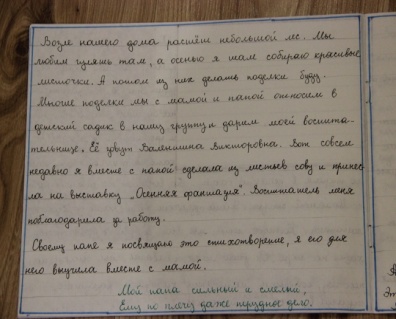 Возле нашего дома растёт небольшой лес. Мы
любим гулять там, а осенью я там собираю красивые
листочки. А потом из них делать поделки буду.
Многие поделки мы с мамой и папой относим в
детский садик в нашу группу и дарим моей воспита-
тельнице. Её зовут Валентина Викторовна. Вот совсем
недавно я вместе с папой сделала из листьев сову и принес-
ла на выставку „Осенняя фантазия". Воспитатель меня
поблагодарила за работу.
Своему папе я посвящаю это стихотворение, я его для
него выучила вместе с мамой.
Мой папа сильный и смелый,
Ему по плечу даже трудное дело.